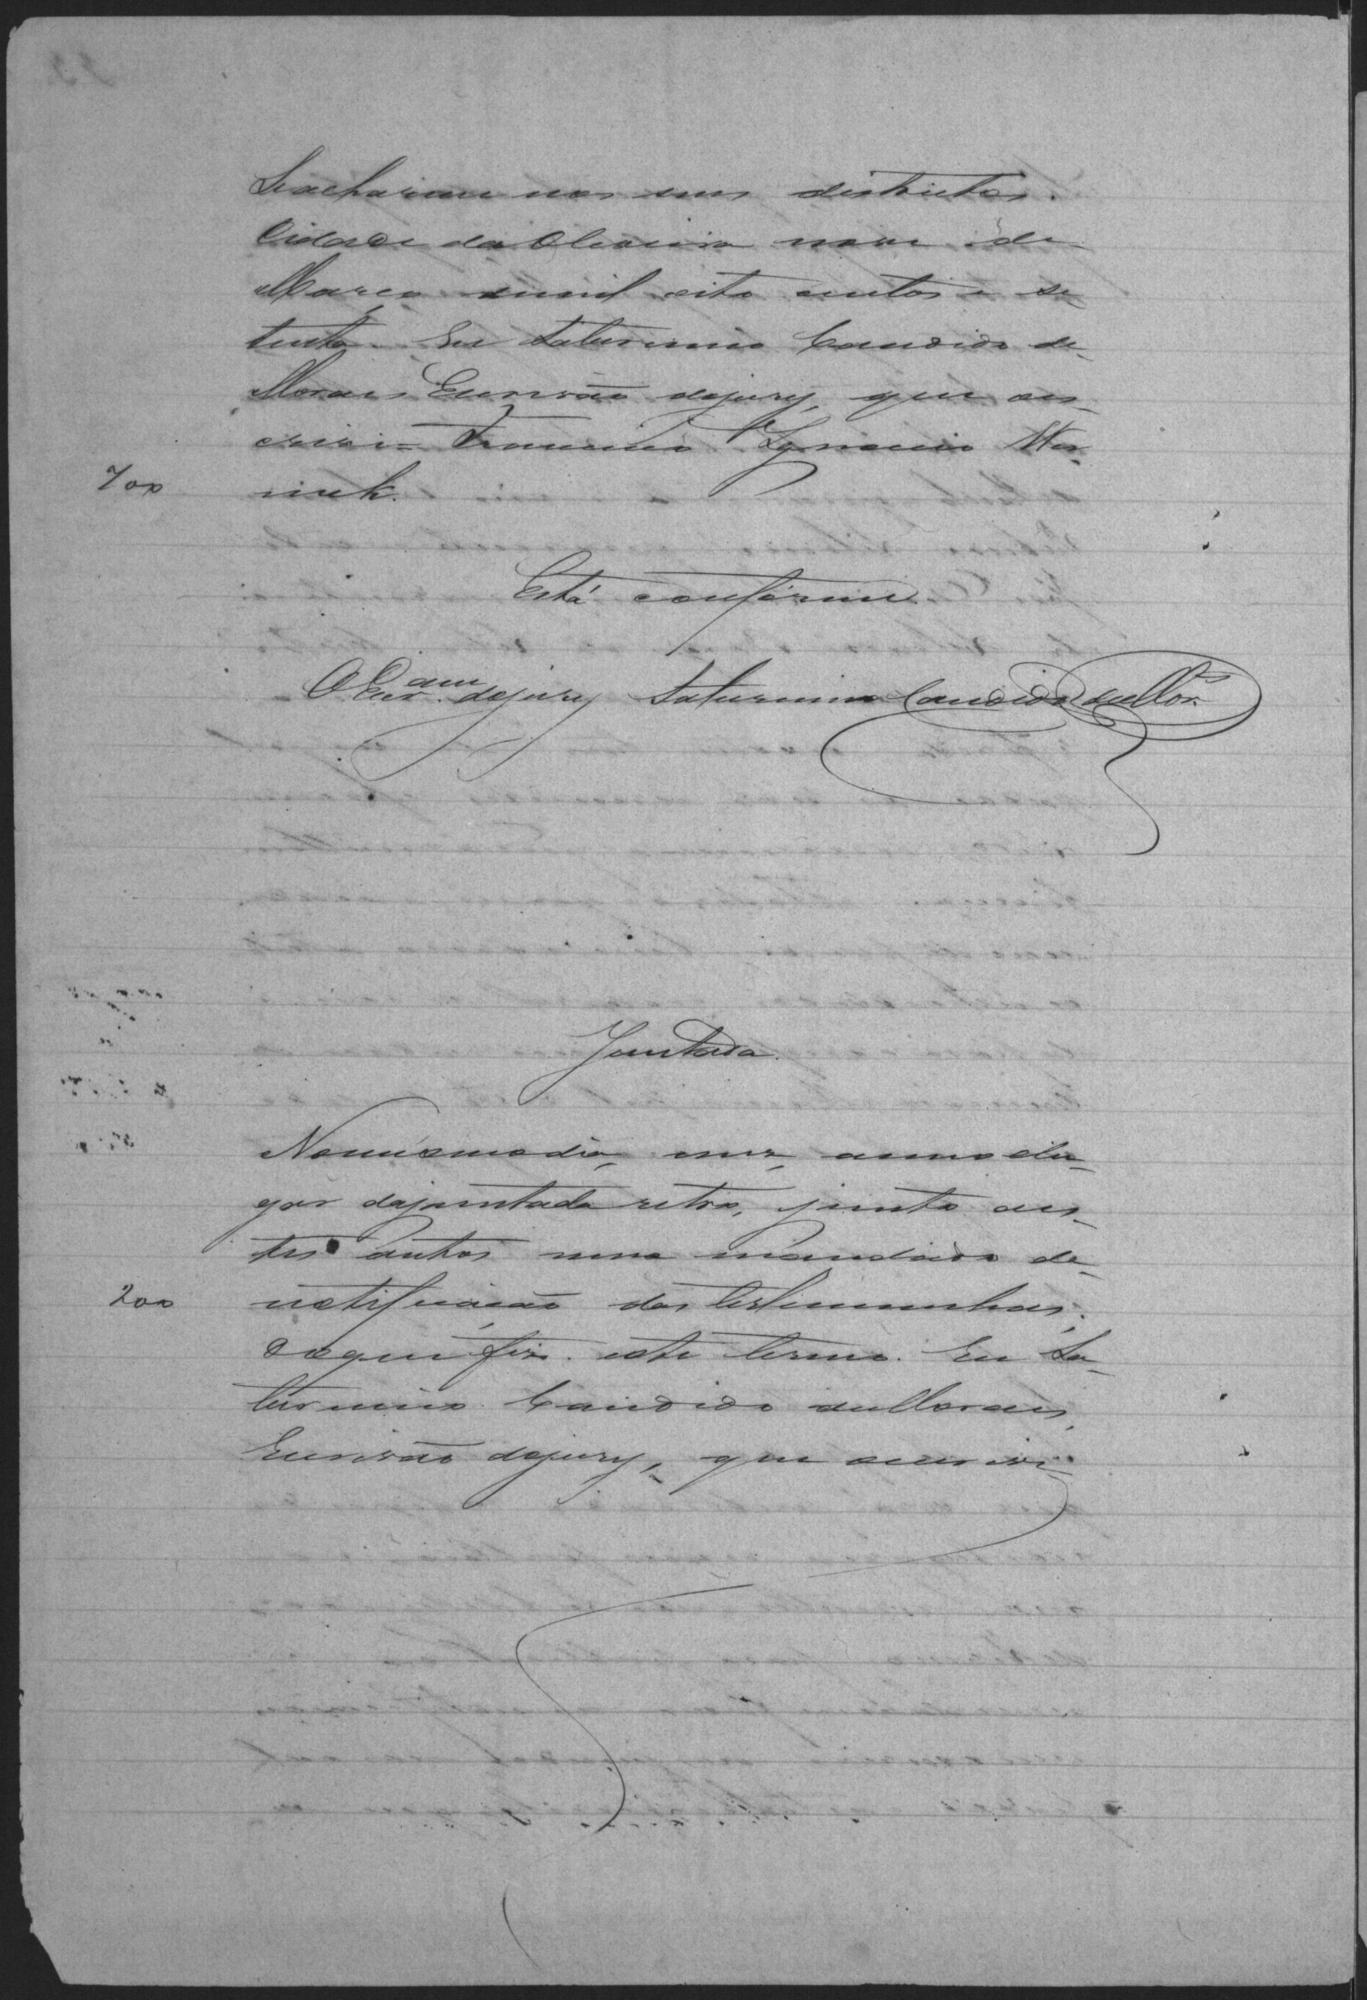 Seacharem nos seus districtos.
Cidade da Oliveira nove de
Março demil oito centos e se
tenta. Eu Saturnino Candido de
Moraes Escrivão dojury, que es-
crevi = Francisco Ignacio Wer-
700
neck.
Está conforme
O Escr.am dojury Saturnino Candido deMor.s
Juntada.
Nomesmodia, mez, anno elu-
gar dajuntada retro, junto aes-
tes autos um mandado de
200
notificação das testimunhas;
doque fiz este termo. Eu Sa-
turnino Candido deMoraes,
Escrivão dojury, que escrevi